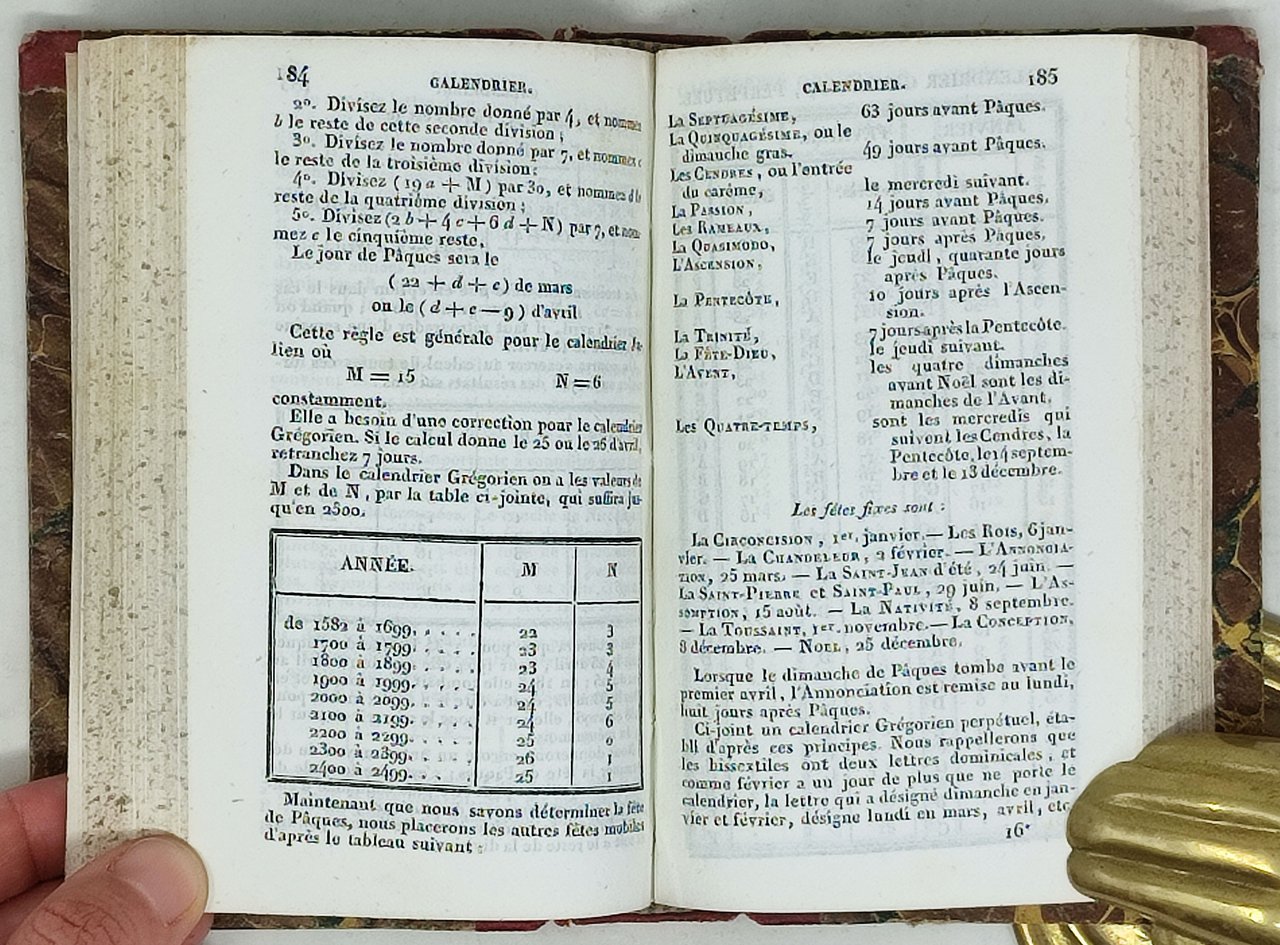 184
CALENDRIER.
2º. Divisez le nombre donné par 4, et nommez
b le reste de cette seconde division ;
3º. Divisez le nombre donné par 7, et nommez c
le reste de la troisième division ;
4º. Divisez (19 a + M) par 30, et nommez d le
reste de la quatrième division ;
5º. Divisez (2 b + 4 c + 6 d + N) par 7, et nom-
mez e le cinquième reste.
Le jour de Pâques sera le
( 22 + d + e ) de mars
ou le ( d + e — 9 ) d'avril
Cette règle est générale pour le calendrier Ju-
lien où
M = 15 N = 6
constamment.
Elle a besoin d'une correction pour le calendrier
Grégorien. Si le calcul donne le 25 ou le 26 d'avril,
retranchez 7 jours.
Dans le calendrier Grégorien on a les valeurs de
M et de N, par la table ci-jointe, qui suffira jus-
qu'en 2500.
ANNÉE. M N
de 1582 à 1699. . . . . 22 3
1700 à 1799. . . . . 23 3
1800 à 1899. . . . . 23 4
1900 à 1999. . . . . 24 5
2000 à 2099. . . . . 24 5
2100 à 2199. . . . . 24 6
2200 à 2299. . . . . 25 0
2300 à 2399. . . . . 26 1
2400 à 2499. . . . . 25 1
Maintenant que nous savons déterminer la fête
de Pâques, nous placerons les autres fêtes mobiles
d'après le tableau suivant :
CALENDRIER.
185
La Septuagésime, 63 jours avant Pâques.
La Quinquagésime, ou le
dimanche gras. 49 jours avant Pâques.
Les Cendres, ou l'entrée
du carême, le mercredi suivant.
La Passion, 14 jours avant Pâques.
Les Rameaux, 7 jours avant Pâques.
La Quasimodo, 7 jours après Pâques.
L'Ascension, le jeudi, quarante jours
après Pâques.
La Pentecôte, 10 jours après l'Ascen-
sion.
La Trinité, 7 jours après la Pentecôte.
La Fête-Dieu, le jeudi suivant.
L'Avent, les quatre dimanches
avant Noël sont les di-
manches de l'Avant.
Les Quatre-temps, sont les mercredis qui
suivent les Cendres, la
Pentecôte, le 14 septem-
bre et le 13 décembre.
Les fêtes fixes sont :
La Circoncision, 1er. janvier. — Les Rois, 6 jan-
vier. — La Chandeleur, 2 février. — L'Annoncia-
tion, 25 mars. — La Saint-Jean d'été, 24 juin. —
La Saint-Pierre et Saint-Paul, 29 juin. — L'As-
somption, 15 août. — La Nativité, 8 septembre.
— La Toussaint, 1er. novembre. — La Conception,
8 décembre. — Noel, 25 décembre.
Lorsque le dimanche de Pâques tombe avant le
premier avril, l'Annonciation est remise au lundi,
huit jours après Pâques.
Ci-joint un calendrier Grégorien perpétuel, éta-
bli d'après ces principes. Nous rappellerons que
les bissextiles ont deux lettres dominicales, et
comme février a un jour de plus que ne porte le
calendrier, la lettre qui a désigné dimanche en jan-
vier et février, désigne lundi en mars, avril, etc.
16*